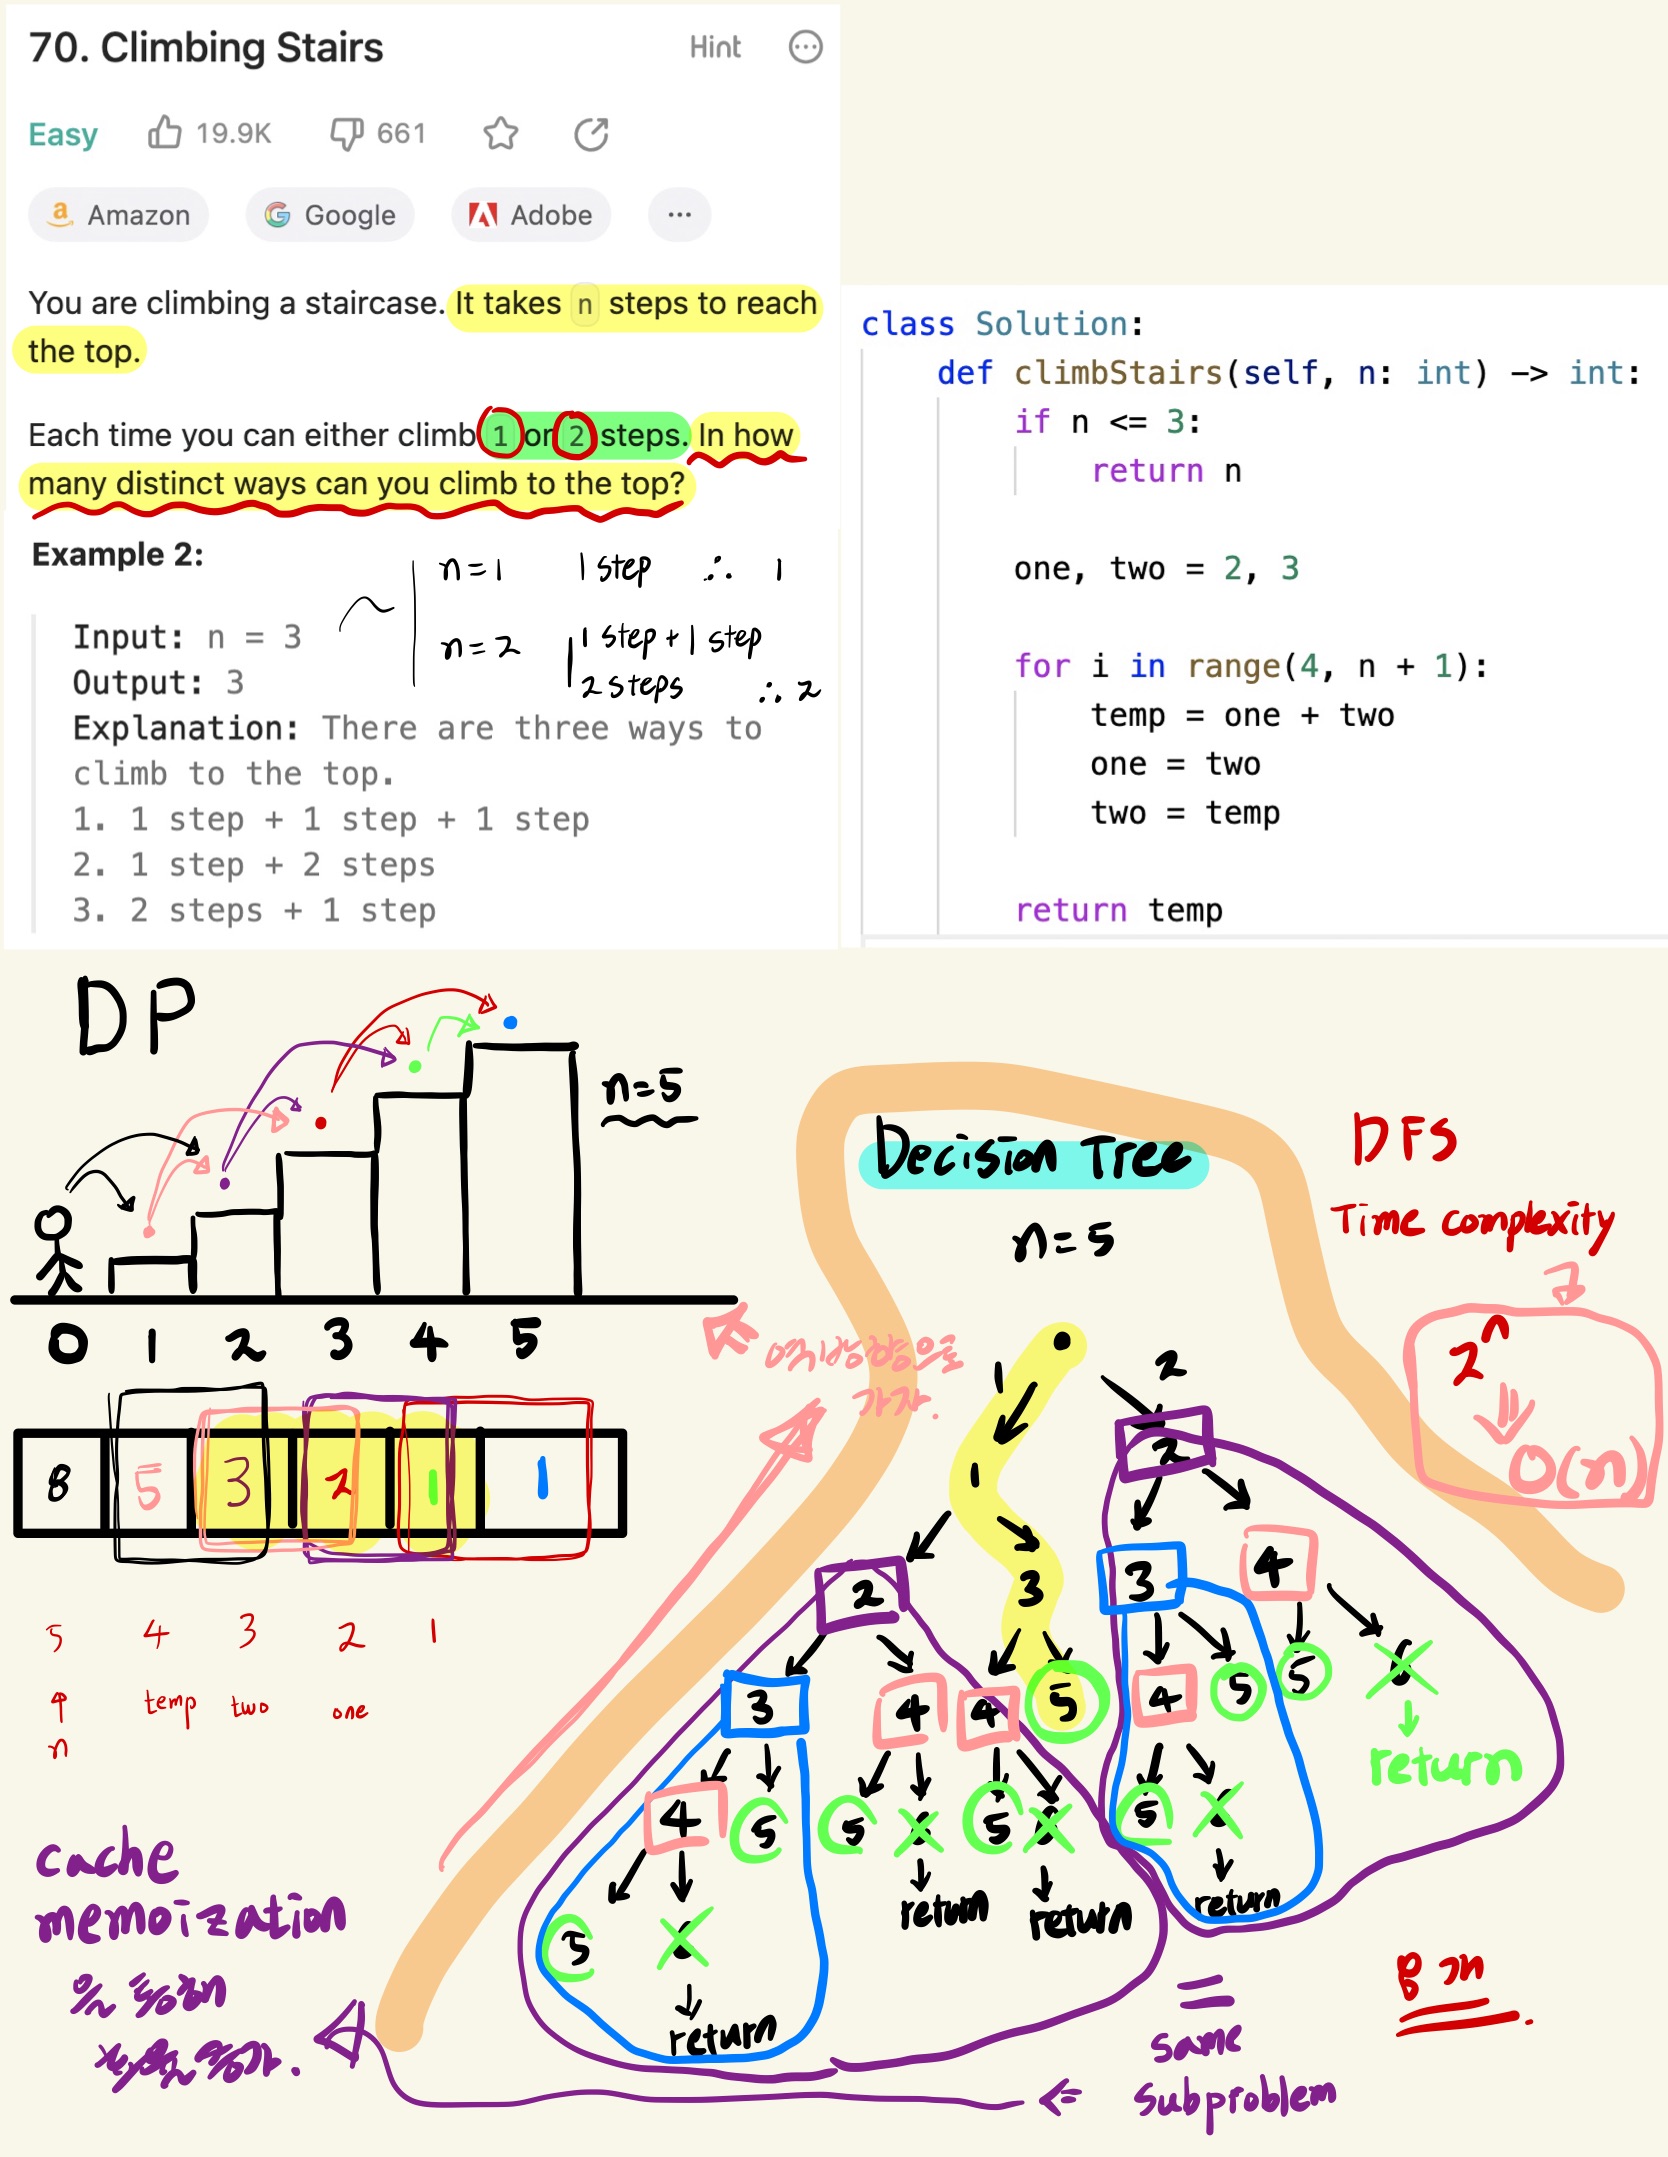 70. Climbing Stairs
Hint
Easy
19.9K
661
Amazon
Google
Adobe
...
You are climbing a staircase. It takes n steps to reach
the top.
Each time you can either climb 1 or 2 steps. In how
many distinct ways can you climb to the top?
Example 2:
Input: n = 3
Output: 3
Explanation: There are three ways to
climb to the top.
1. 1 step + 1 step + 1 step
2. 1 step + 2 steps
3. 2 steps + 1 step
n=1 1 step ∴ 1
n=2 1 step + 1 step
2 steps ∴ 2
class Solution:
def climbStairs(self, n: int) -> int:
if n <= 3:
return n
one, two = 2, 3
for i in range(4, n + 1):
temp = one + two
one = two
two = temp
return temp
DP
n=5
0 1 2 3 4 5
8 5 3 2 1 1
5 4 3 2 1
↑ temp two one
n
역방향으로
가자.
cache
memoization
을 통해
Decision Tree
n=5
DFS
Time complexity
2^n
O(n)
1 2
1 2
2 3 3 4
3 4 4 5 4 5 5 6
return
4 5 5 6 5 6 5 6
return return return
5 6
return
8개
=
same
subproblem